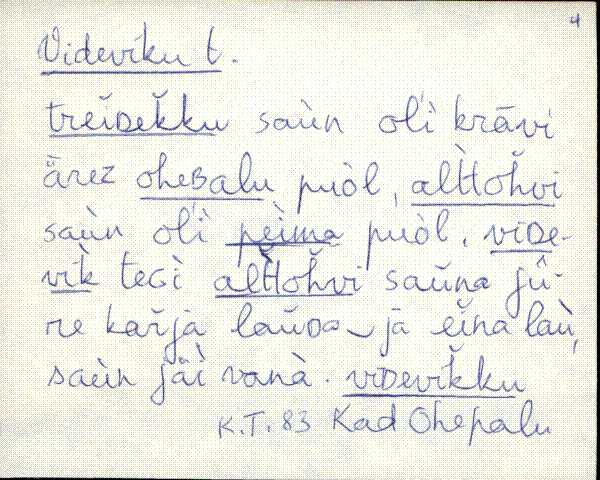 4
Videviku t.
treiᴅek̆ku saùn oĺi krāvi
ārez oheʙalu puòl, alttoh̆vi
saùn oĺi pèìma puòl. viᴅe-
vìk teGì alttoh̆vi saŭna jū-
re kar̆jà laŭᴅa jà eĭna laù,
saùn jäì vanà. viᴅevik̆ku
K.T. 83 Kad Ohepalu